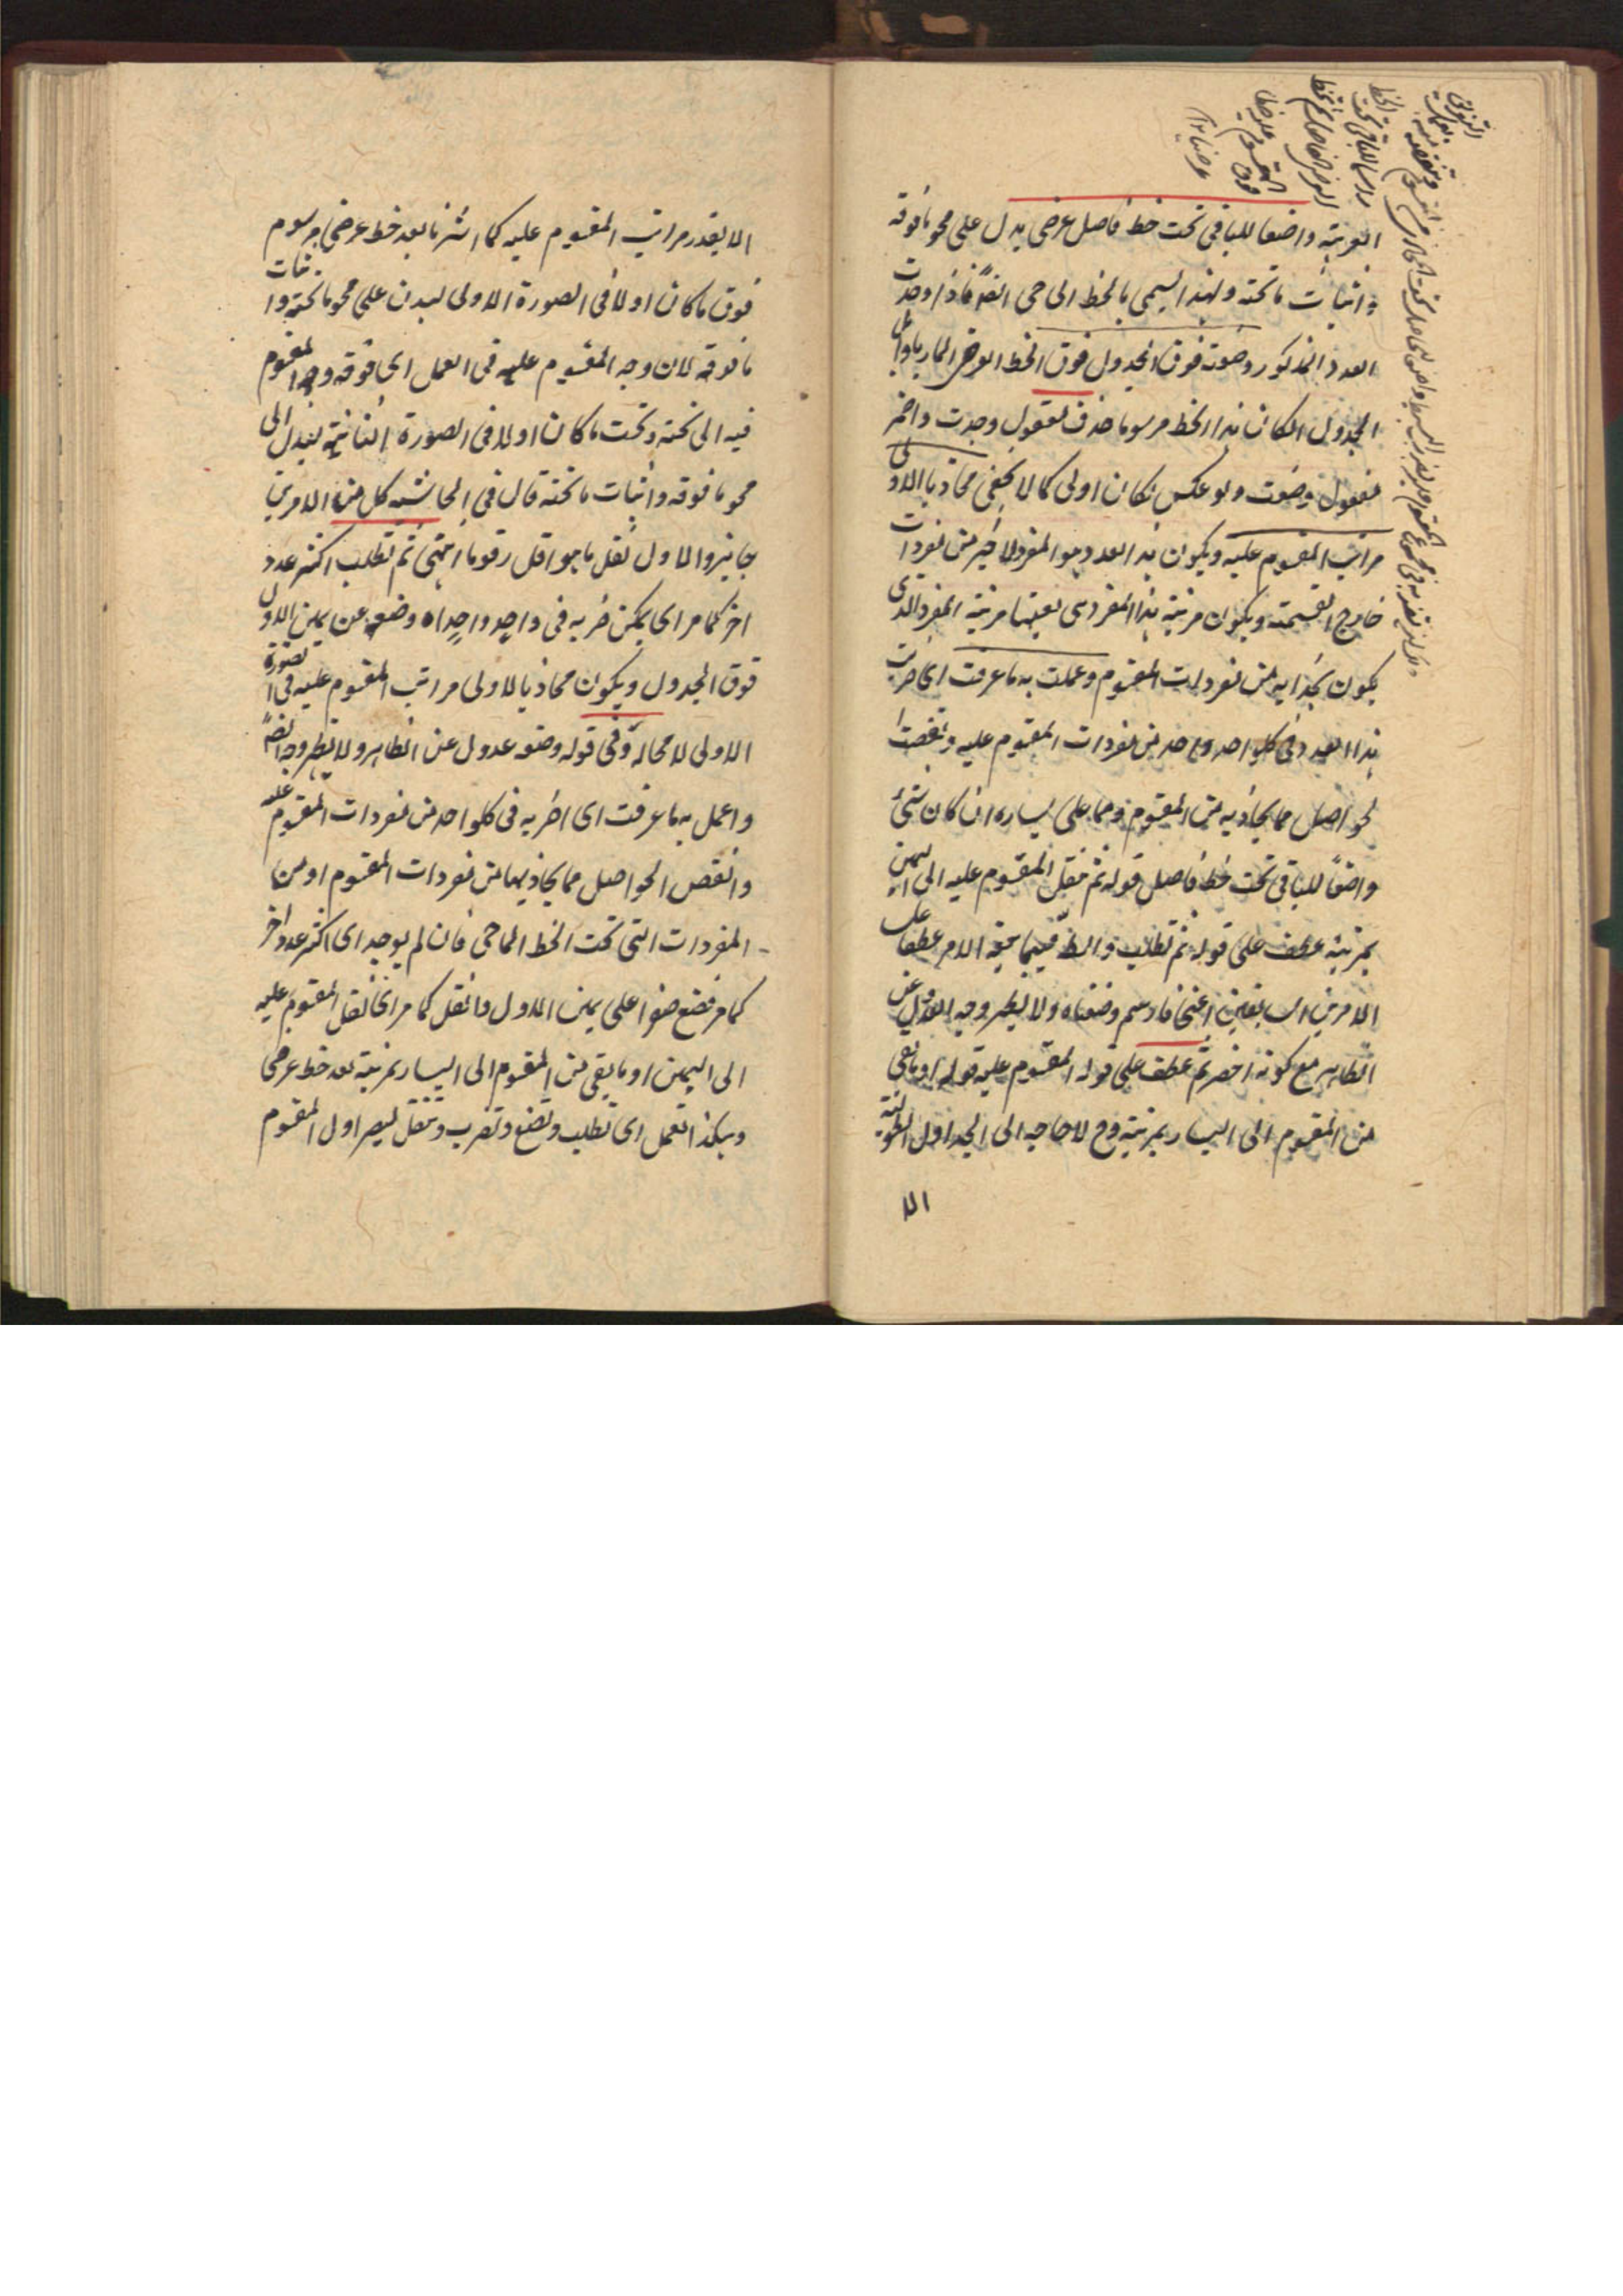 الغربية واضعا للباقي تحت خط فاصل عرضى يدل على محو ما فوقه
و اثبات ما تحته ولهذا يسمى بالخط الماحى ايضا فاذا وجدت
العدد المذكور وضعته فوق الجدول فوق الخط العرضى المار باوائل
الجدول ان كان هذا الخط مرسوما حذف مفعول وجدت واضمر
مفعول وضعت ولو عكس لكان اولى كما لا يخفى محاذيا لاولى
مراتب المقسوم عليه ويكون هذا العدد هو المفرد الاخير من مفردات
خارج القسمة ويكون مرتبة هذا المفرد هى بعينها مرتبة المفرد الذى
يكون بحذائه من مفردات المقسوم وعملت به ما عرفت اى ضربت
هذا العدد فى كل واحد واحد من مفردات المقسوم عليه ونقصت
الحواصل مما يحاذيه من المقسوم ومما على يساره ان كان شئ
واضعا للباقى تحت خط فاصل قوله ثم تنقل المقسوم عليه الى اليمين
بمرتبة عطف على قوله ثم تطلب والظ فيما سبق الامر عطفا على
الامرين السابقين اعنى فارسم وضعناه ولا يظهر وجه العدول عن
الظاهر مع كونه اخصر ثم عطف على قوله المقسوم عليه قوله او ما بقى
من المقسوم الى اليسار بمرتبة وح لا حاجة الى الجداول الطويلة
الا
الا بقدر مراتب المقسوم عليه كما اشرنا بعد خط عرضى مرسوم
فوق ما كان اولا فى الصورة الاولى ليدل على محو ما تحته واثبات
ما فوقه لان وجه المقسوم عليه فى العمل اى فوقه وجه المقسوم
فيه الى تحته وتحت ما كان اولا فى الصورة الثانية ليدل على
محو ما فوقه واثبات ما تحته قال فى الحاشية كل من الامرين
جائز والاول نقل ما هو اقل رقوما انتهى ثم تطلب اكثر عدد
اخر كما مر اى يمكن ضربه فى واحد واحد اه وضعه عن يمين الاول
فوق الجدول ويكون محاذيا لاولى مراتب المقسوم عليه فى الصورة
الاولى لا محالة وفى قوله وضعه عدول عن الظاهر ولا يظهر وجه ايضا
واعمل به ما عرفت اى اضربه فى كل واحد من مفردات المقسوم عليه
وانقص الحواصل مما يحاذيها من مفردات المقسوم او من
المفردات التى تحت الخط الماحى فان لم يوجد اى اكثر عدد اخر
كما مر فضع صفرا على يمين الاول وانقل كما مر اى انقل المقسوم عليه
الى اليمين او ما بقى من المقسوم الى اليسار بمرتبة بعد خط عرضى
وهكذا تعمل اى تطلب وتضع وتضرب وتنقل ليصير اول المقسوم